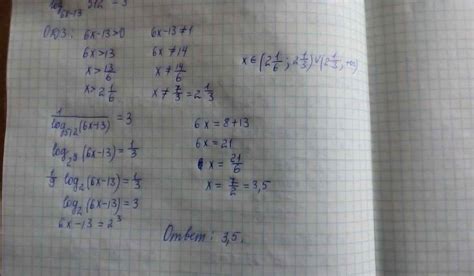 log₆ₓ₋₁₃ 512 = 3
ОДЗ: 6x-13>0
6x>13
x>13/6
x>2 1/6
6x-13≠1
6x≠14
x≠14/6
x≠7/3=2 1/3
x∈(2 1/6; 2 1/3)∪(2 1/3; +∞)
1/log₅₁₂(6x-13) = 3
log₂⁹(6x-13) = 1/3
1/9 log₂(6x-13) = 1/3
log₂(6x-13) = 3
6x-13 = 2³
6x = 8+13
6x = 21
x = 21/6
x = 7/2 = 3,5
Ответ: 3,5.